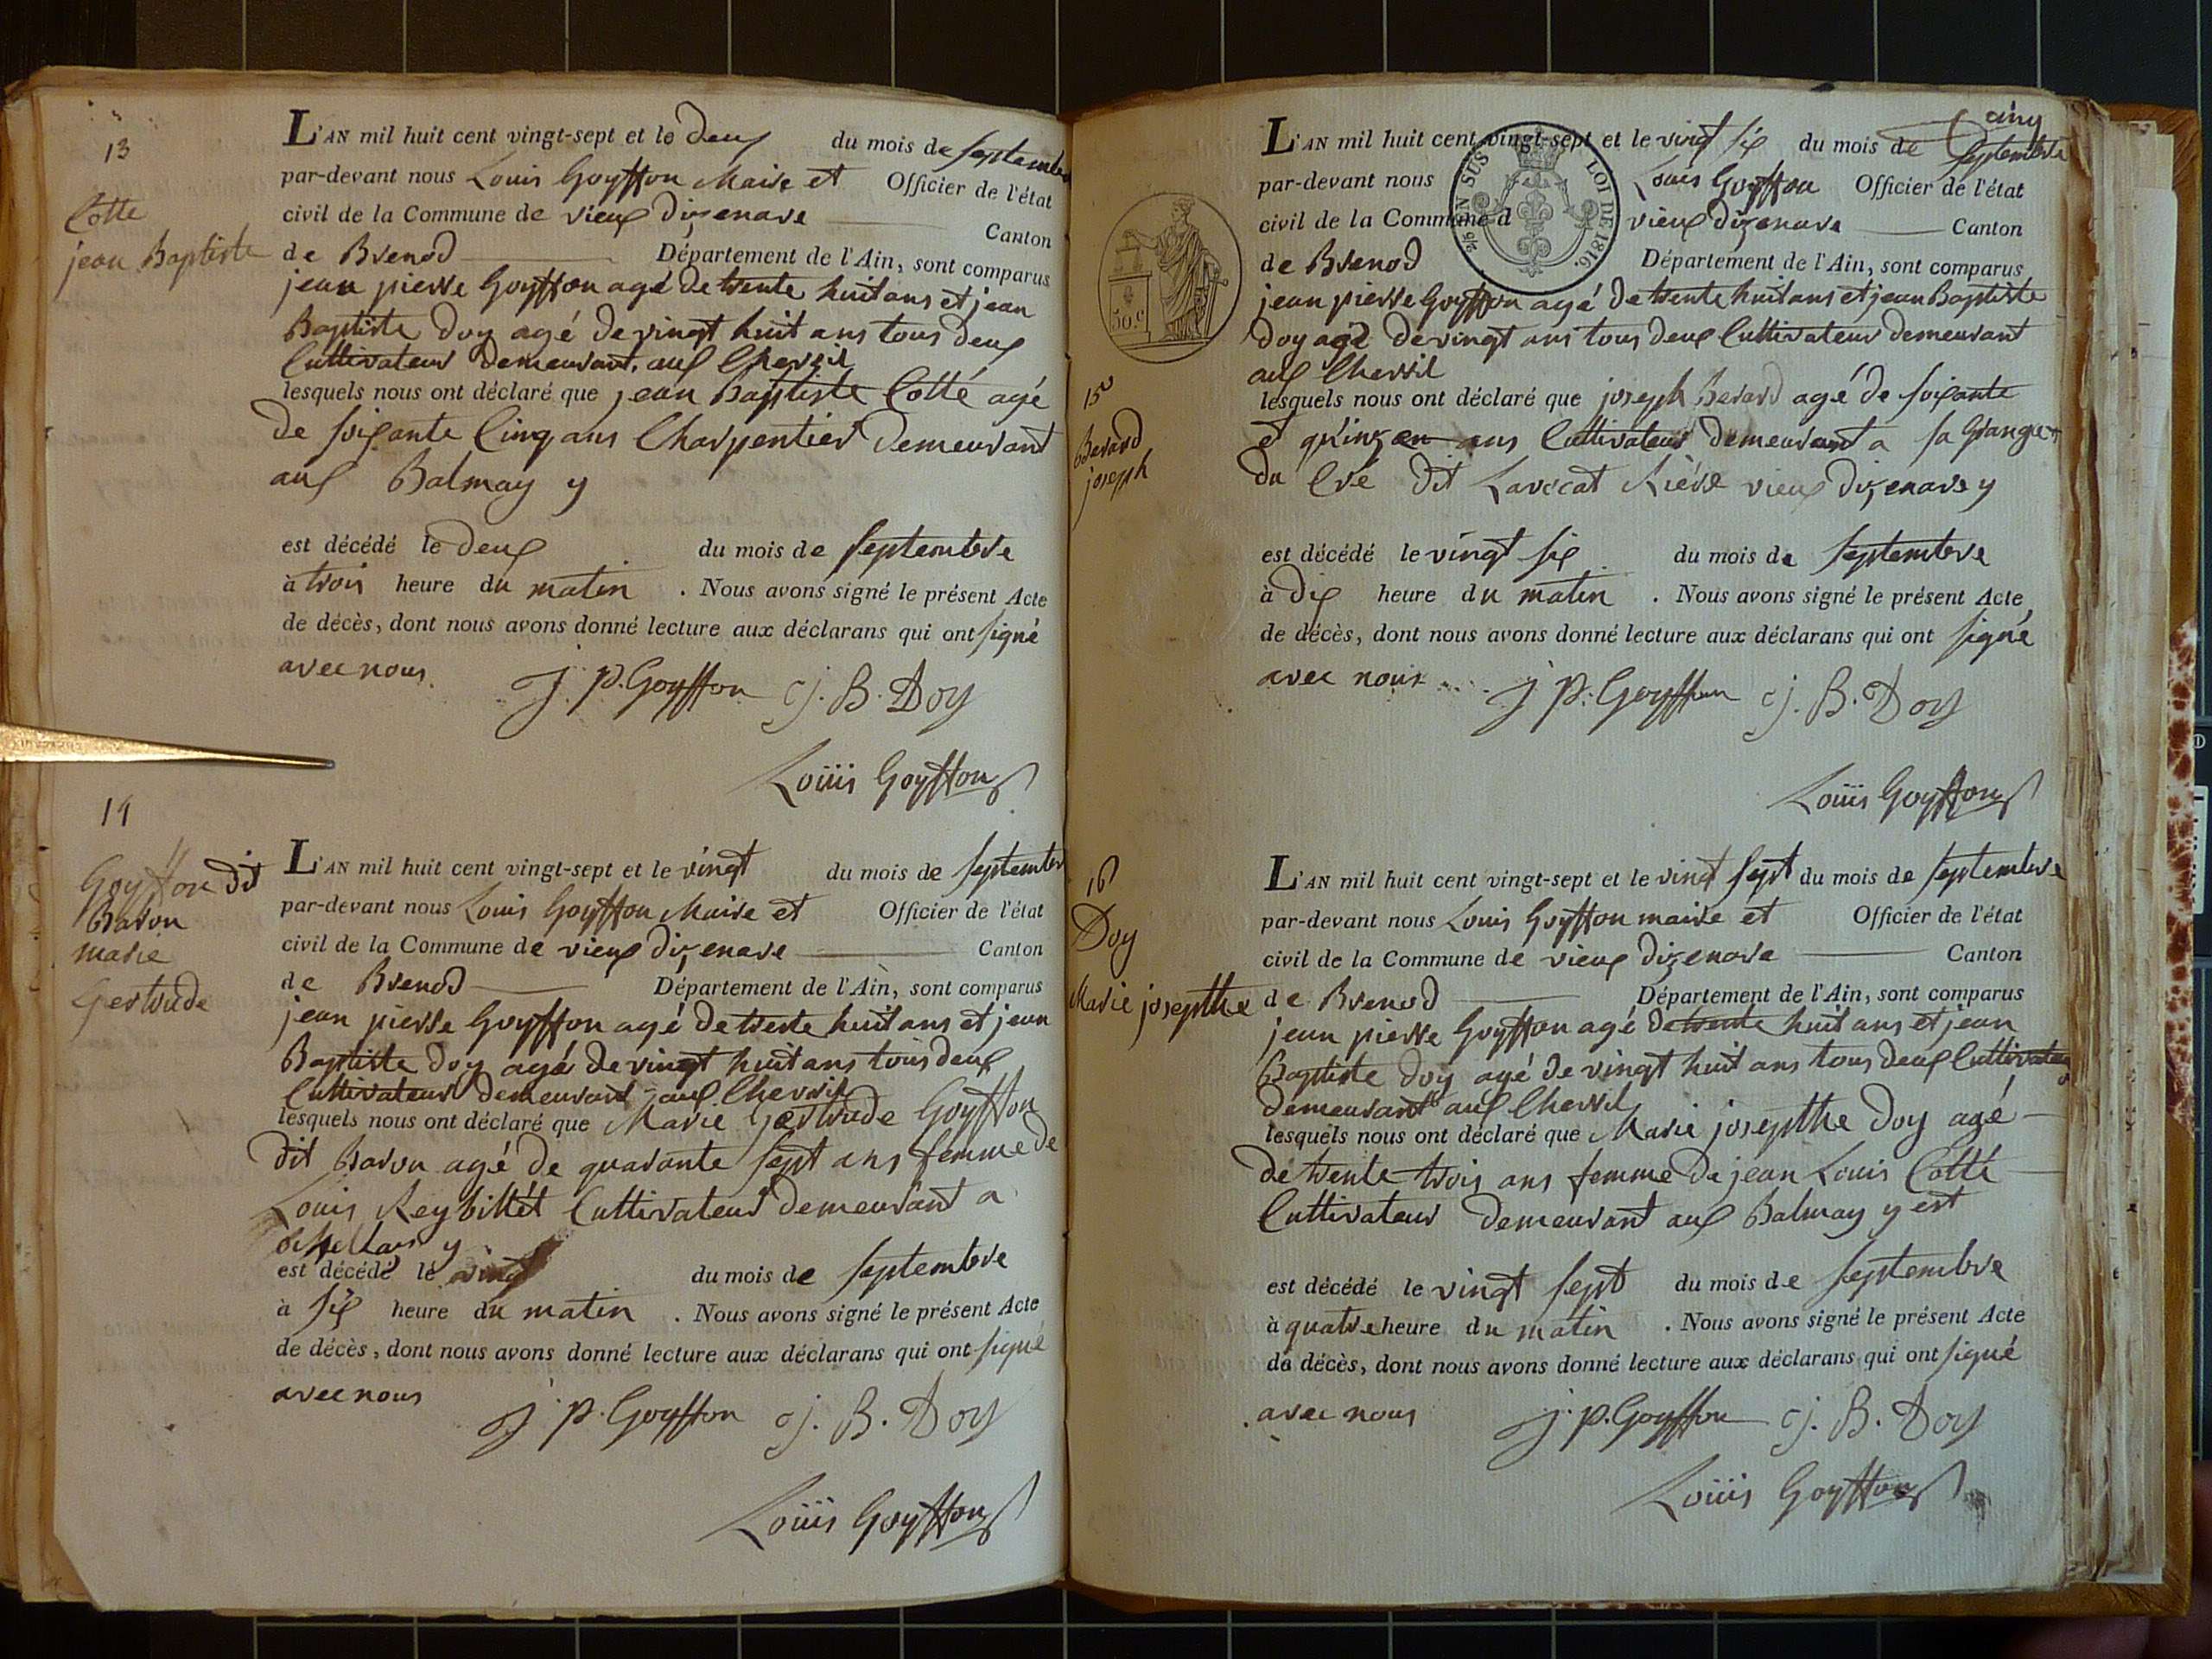 13
Cotte
jean Baptiste
L'AN mil huit cent vingt-sept et le deux du mois de septembre
par-devant nous Louis Goyffon Maire et Officier de l'état
civil de la Commune de vieux dizenave Canton
de Brenod Département de l'Ain, sont comparus
jean pierre Goyffon agé de trente huit ans et jean
Baptiste Doy agé de vingt huit ans tous deux
Cultivateur Demeurant aux Chevril
lesquels nous ont déclaré que jean Baptiste Cotte agé
de soixante Cinq ans Charpentier Demeurant
aux Balmay y
est décédé le deux du mois de septembre
à trois heure du matin . Nous avons signé le présent Acte
de décès, dont nous avons donné lecture aux déclarans qui ont signé
avec nous
j. p. Goyffon j. B. Doy
Loüis Goyffon
14
Goyffon dit
Baron
marie
Gertrude
L'AN mil huit cent vingt-sept et le vingt du mois de septembre
par-devant nous Louis Goyffon Maire et Officier de l'état
civil de la Commune de vieux dizenave Canton
de Brenod Département de l'Ain, sont comparus
jean pierre Goyffon agé de trente huit ans et jean
Baptiste Doy agé de vingt huit ans tous deux
Cultivateur demeurant aux Chevril
lesquels nous ont déclaré que Marie Gertrude Goyffon
dit Baron agé de quarante sept ans femme de
Louis Reybillet Cultivateur demeurant a
y
est décédé le vingt du mois de septembre
à six heure du matin . Nous avons signé le présent Acte
de décès, dont nous avons donné lecture aux déclarans qui ont signé
avec nous
j. p. Goyffon j. B. Doy
Loüis Goyffon
cinq
50.c
25 EN SUS LOI DE 1816.
15
Berard
joseph
L'AN mil huit cent vingt-sept et le vingt six du mois de septembre
par-devant nous Louis Goyffon Officier de l'état
civil de la Commune d vieux dizenave Canton
de Brenod Département de l'Ain, sont comparus
jean pierre Goyffon agé de trente huit ans et jean Baptiste
Doy agé de vingt ans tous deux Cultivateur demeurant
aux Chevril
lesquels nous ont déclaré que joseph Berard agé de soixante
et quinze ans Cultivateur demeurant a sa Grange
du Cré dit Lavocat Rière vieux dizenave y
est décédé le vingt six du mois de septembre
à dix heure du matin . Nous avons signé le présent Acte
de décès, dont nous avons donné lecture aux déclarans qui ont signé
avec nous
j. p. Goyffon j. B. Doy
Loüis Goyffon
16
Doy
Marie josepthe
L'AN mil huit cent vingt-sept et le vingt sept du mois de septembre
par-devant nous Louis Goyffon maire et Officier de l'état
civil de la Commune de vieux dizenave Canton
de Brenod Département de l'Ain, sont comparus
jean pierre Goyffon agé de trente huit ans et jean
Baptiste Doy agé de vingt huit ans tous deux Cultivateur
demeurant aux Chevril
lesquels nous ont déclaré que Marie josepthe Doy agé
de trente trois ans femme de jean Louis Cotte
Cultivateur demeurant aux Balmay y est
est décédé le vingt sept du mois de septembre
à quatre heure du matin . Nous avons signé le présent Acte
de décès, dont nous avons donné lecture aux déclarans qui ont signé
avec nous
j. p. Goyffon j. B. Doy
Loüis Goyffon